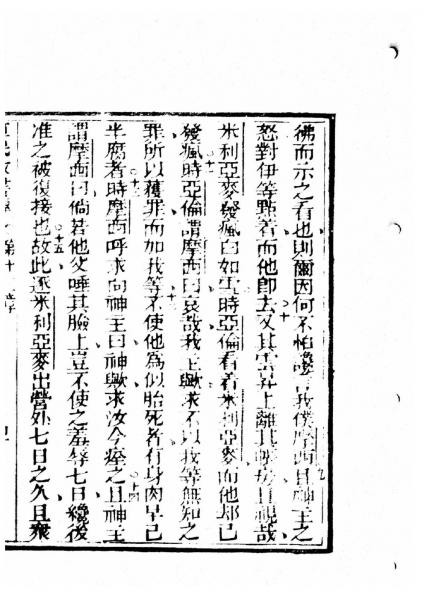 彿而示之看也則爾因何不怕讒言我僕摩西且神主之
怒對伊等點着而他即去又其雲昇上離其帳房且視哉
米利亞麥發瘋白如雪時亞倫看着米利亞麥而他却已
發瘋時亞倫謂摩西曰哀哉我主歟求不以我等無知之
罪所以獲罪而加我等不使他為似胎死者有身肉早已
半腐者時摩西呼求向神主曰神歟求汝今痊之且神主
謂摩西曰倘若他父唾其臉上豈不使之羞辱七日纔後
准之被復接也故此逐米利亞麥出營外七日之久且衆